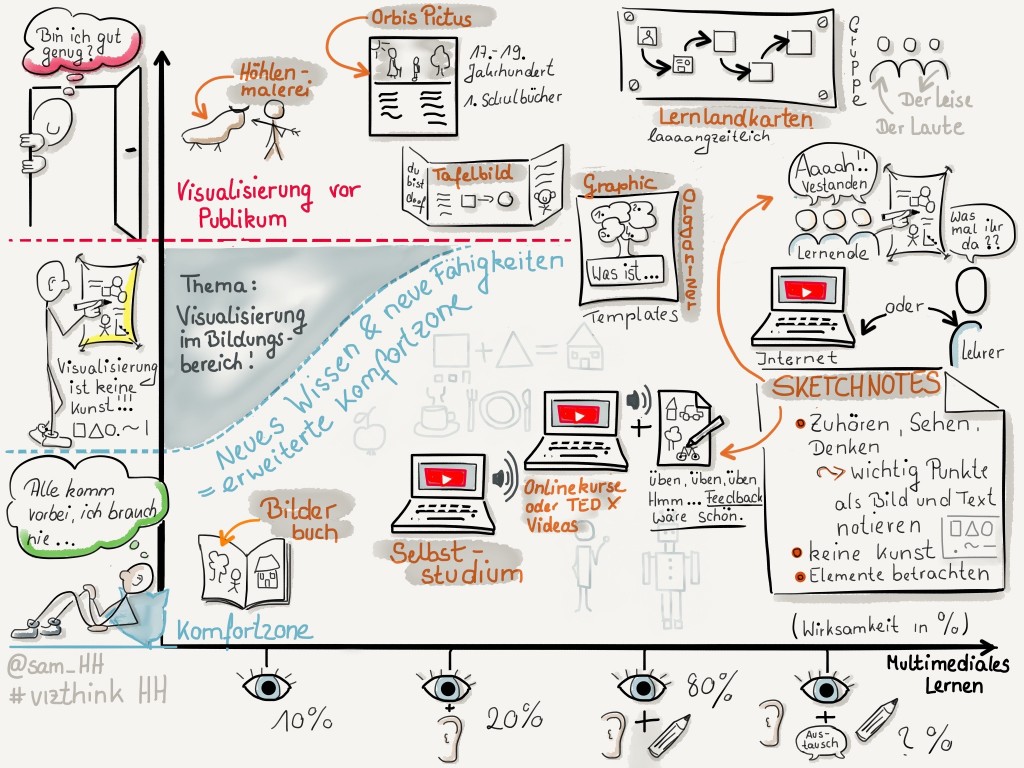 Bin ich gut
genug?
Höhlen-
malerei
Orbis Pictus
17.-19.
Jahrhundert
1. Schulbücher
Lernlandkarten
laaaangzeitlich
Gruppe
Der Leise
Der Laute
Visualisierung vor
Publikum
du
bist
doof
Tafelbild
Graphic
Organizer
1.
2.
Was ist...
Templates
Aaaah!!
Vestanden
Lernende
Was
mal ihr
da??
Internet
oder
Lehrer
Thema:
Visualisierung
im Bildungs-
bereich!
Neues Wissen & neue Fähigkeiten
= erweiterte Komfortzone
Visualisierung
ist keine
Kunst!!!
SKETCHNOTES
Zuhören, Sehen,
Denken
wichtig Punkte
als Bild und Text
notieren
keine Kunst
Elemente betrachten
Onlinekurse
oder TED X
Videos
+
üben, üben, üben
Hmm... Feedback
wäre schön.
Selbst-
studium
Alle komm
vorbei, ich brauch
nie...
Bilder
buch
Komfortzone
(Wirksamkeit in %)
Multimediales
Lernen
@sam_HH
# vizthink HH
10%
+
20%
+
80%
+
Aus-
tausch
? %